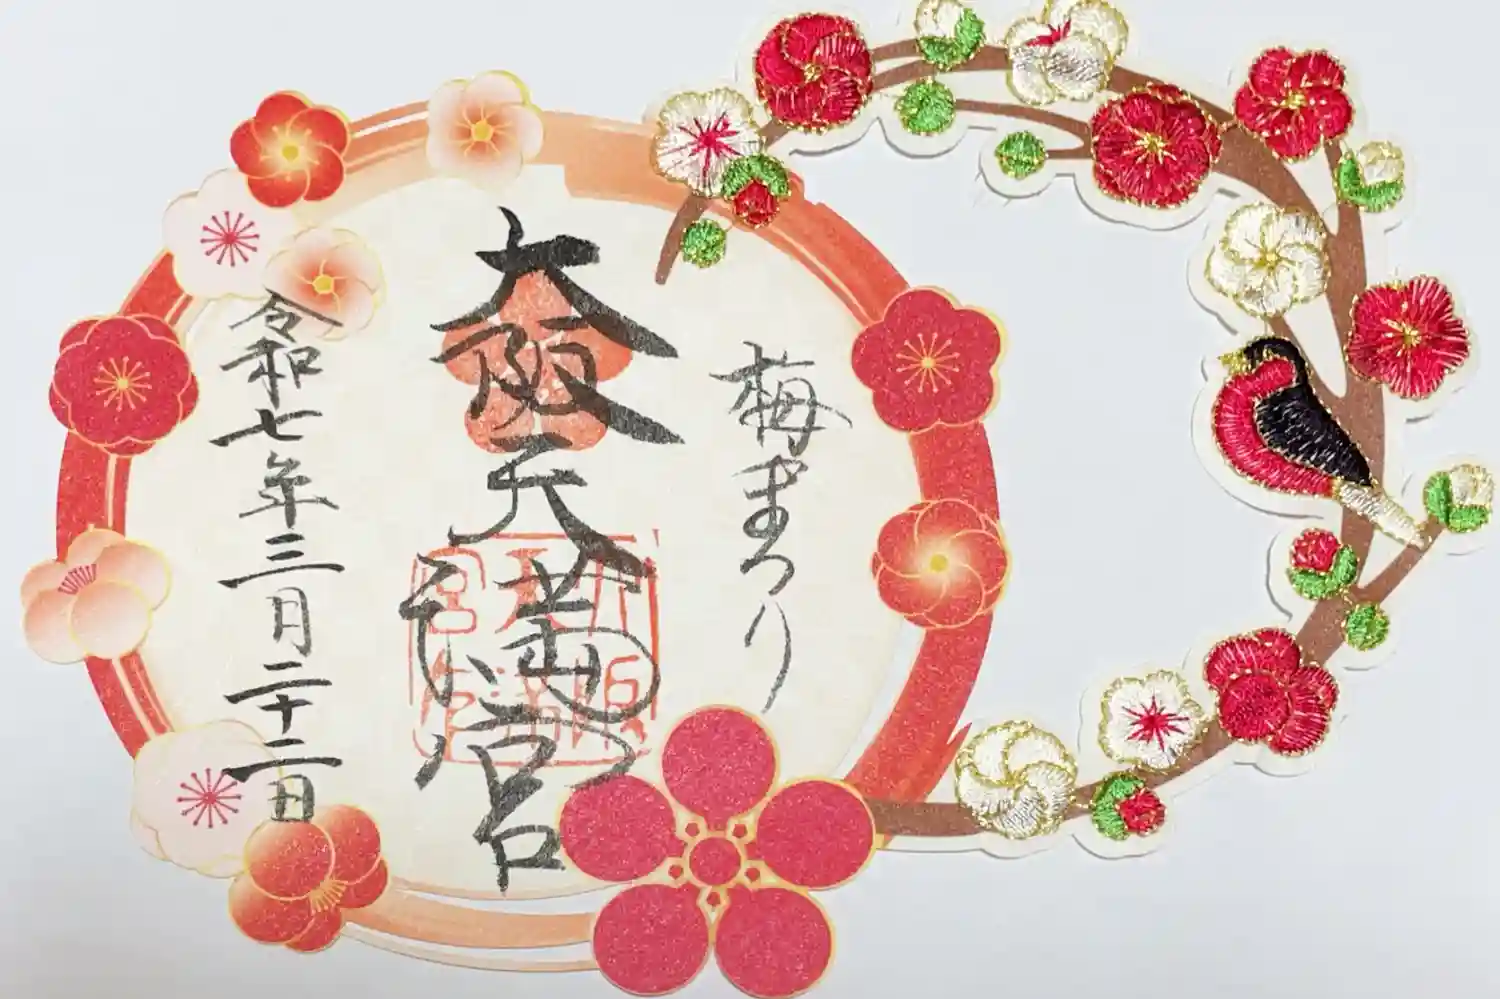 梅まつり
大阪天満宮
令和七年三月二十二日